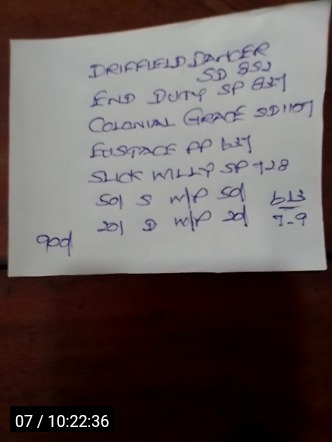 DRIFFIELD DANCER
SD 852
END DUTY SP 837
COLONIAL GRACE SD 1107
EUSTACE PP 637
SLICK WILLY SP 728
50/ S W/P 50/
20/ D W/P 20/ 7-9
90d
07 / 10:22:36